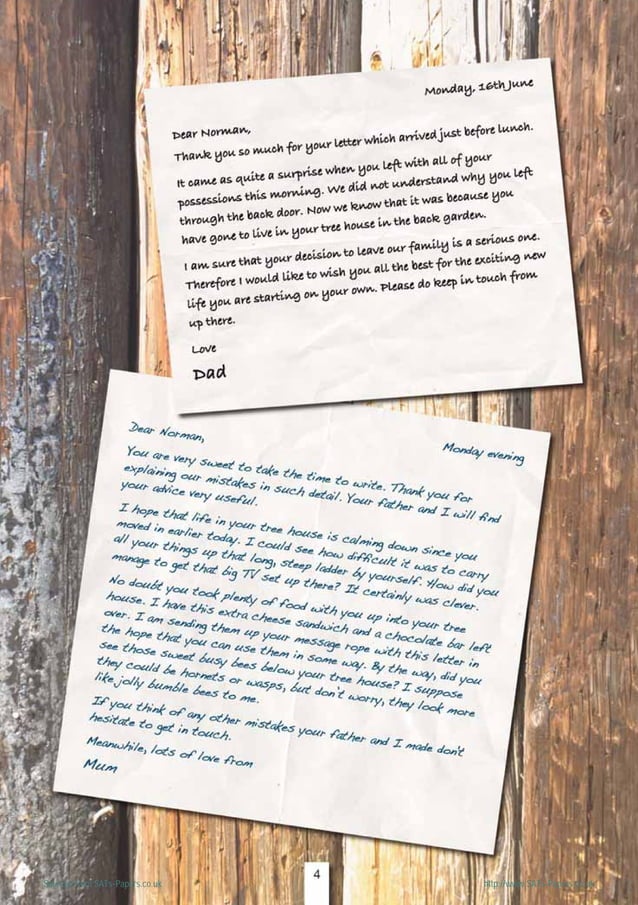 Monday, 16th June
Dear Norman,
Thank you so much for your letter which arrived just before lunch.
It came as quite a surprise when you left with all of your
possessions this morning. We did not understand why you left
through the back door. Now we know that it was because you
have gone to live in your tree house in the back garden.
I am sure that your decision to leave our family is a serious one.
Therefore I would like to wish you all the best for the exciting new
life you are starting on your own. Please do keep in touch from
up there.
Love
Dad
Dear Norman,
Monday evening
You are very sweet to take the time to write. Thank you for
explaining our mistakes in such detail. Your father and I will find
your advice very useful.
I hope that life in your tree house is calming down since you
moved in earlier today. I could see how difficult it was to carry
all your things up that long, steep ladder by yourself. How did you
manage to get that big TV set up there? It certainly was clever.
No doubt you took plenty of food with you up into your tree
house. I have this extra cheese sandwich and a chocolate bar left
over. I am sending them up your message rope with this letter in
the hope that you can use them in some way. By the way, did you
see those sweet busy bees below your tree house? I suppose
they could be hornets or wasps, but don't worry, they look more
like jolly bumble bees to me.
If you think of any other mistakes your father and I made don't
hesitate to get in touch.
Meanwhile, lots of love from
Mum
4
SATs-Papers.co.uk